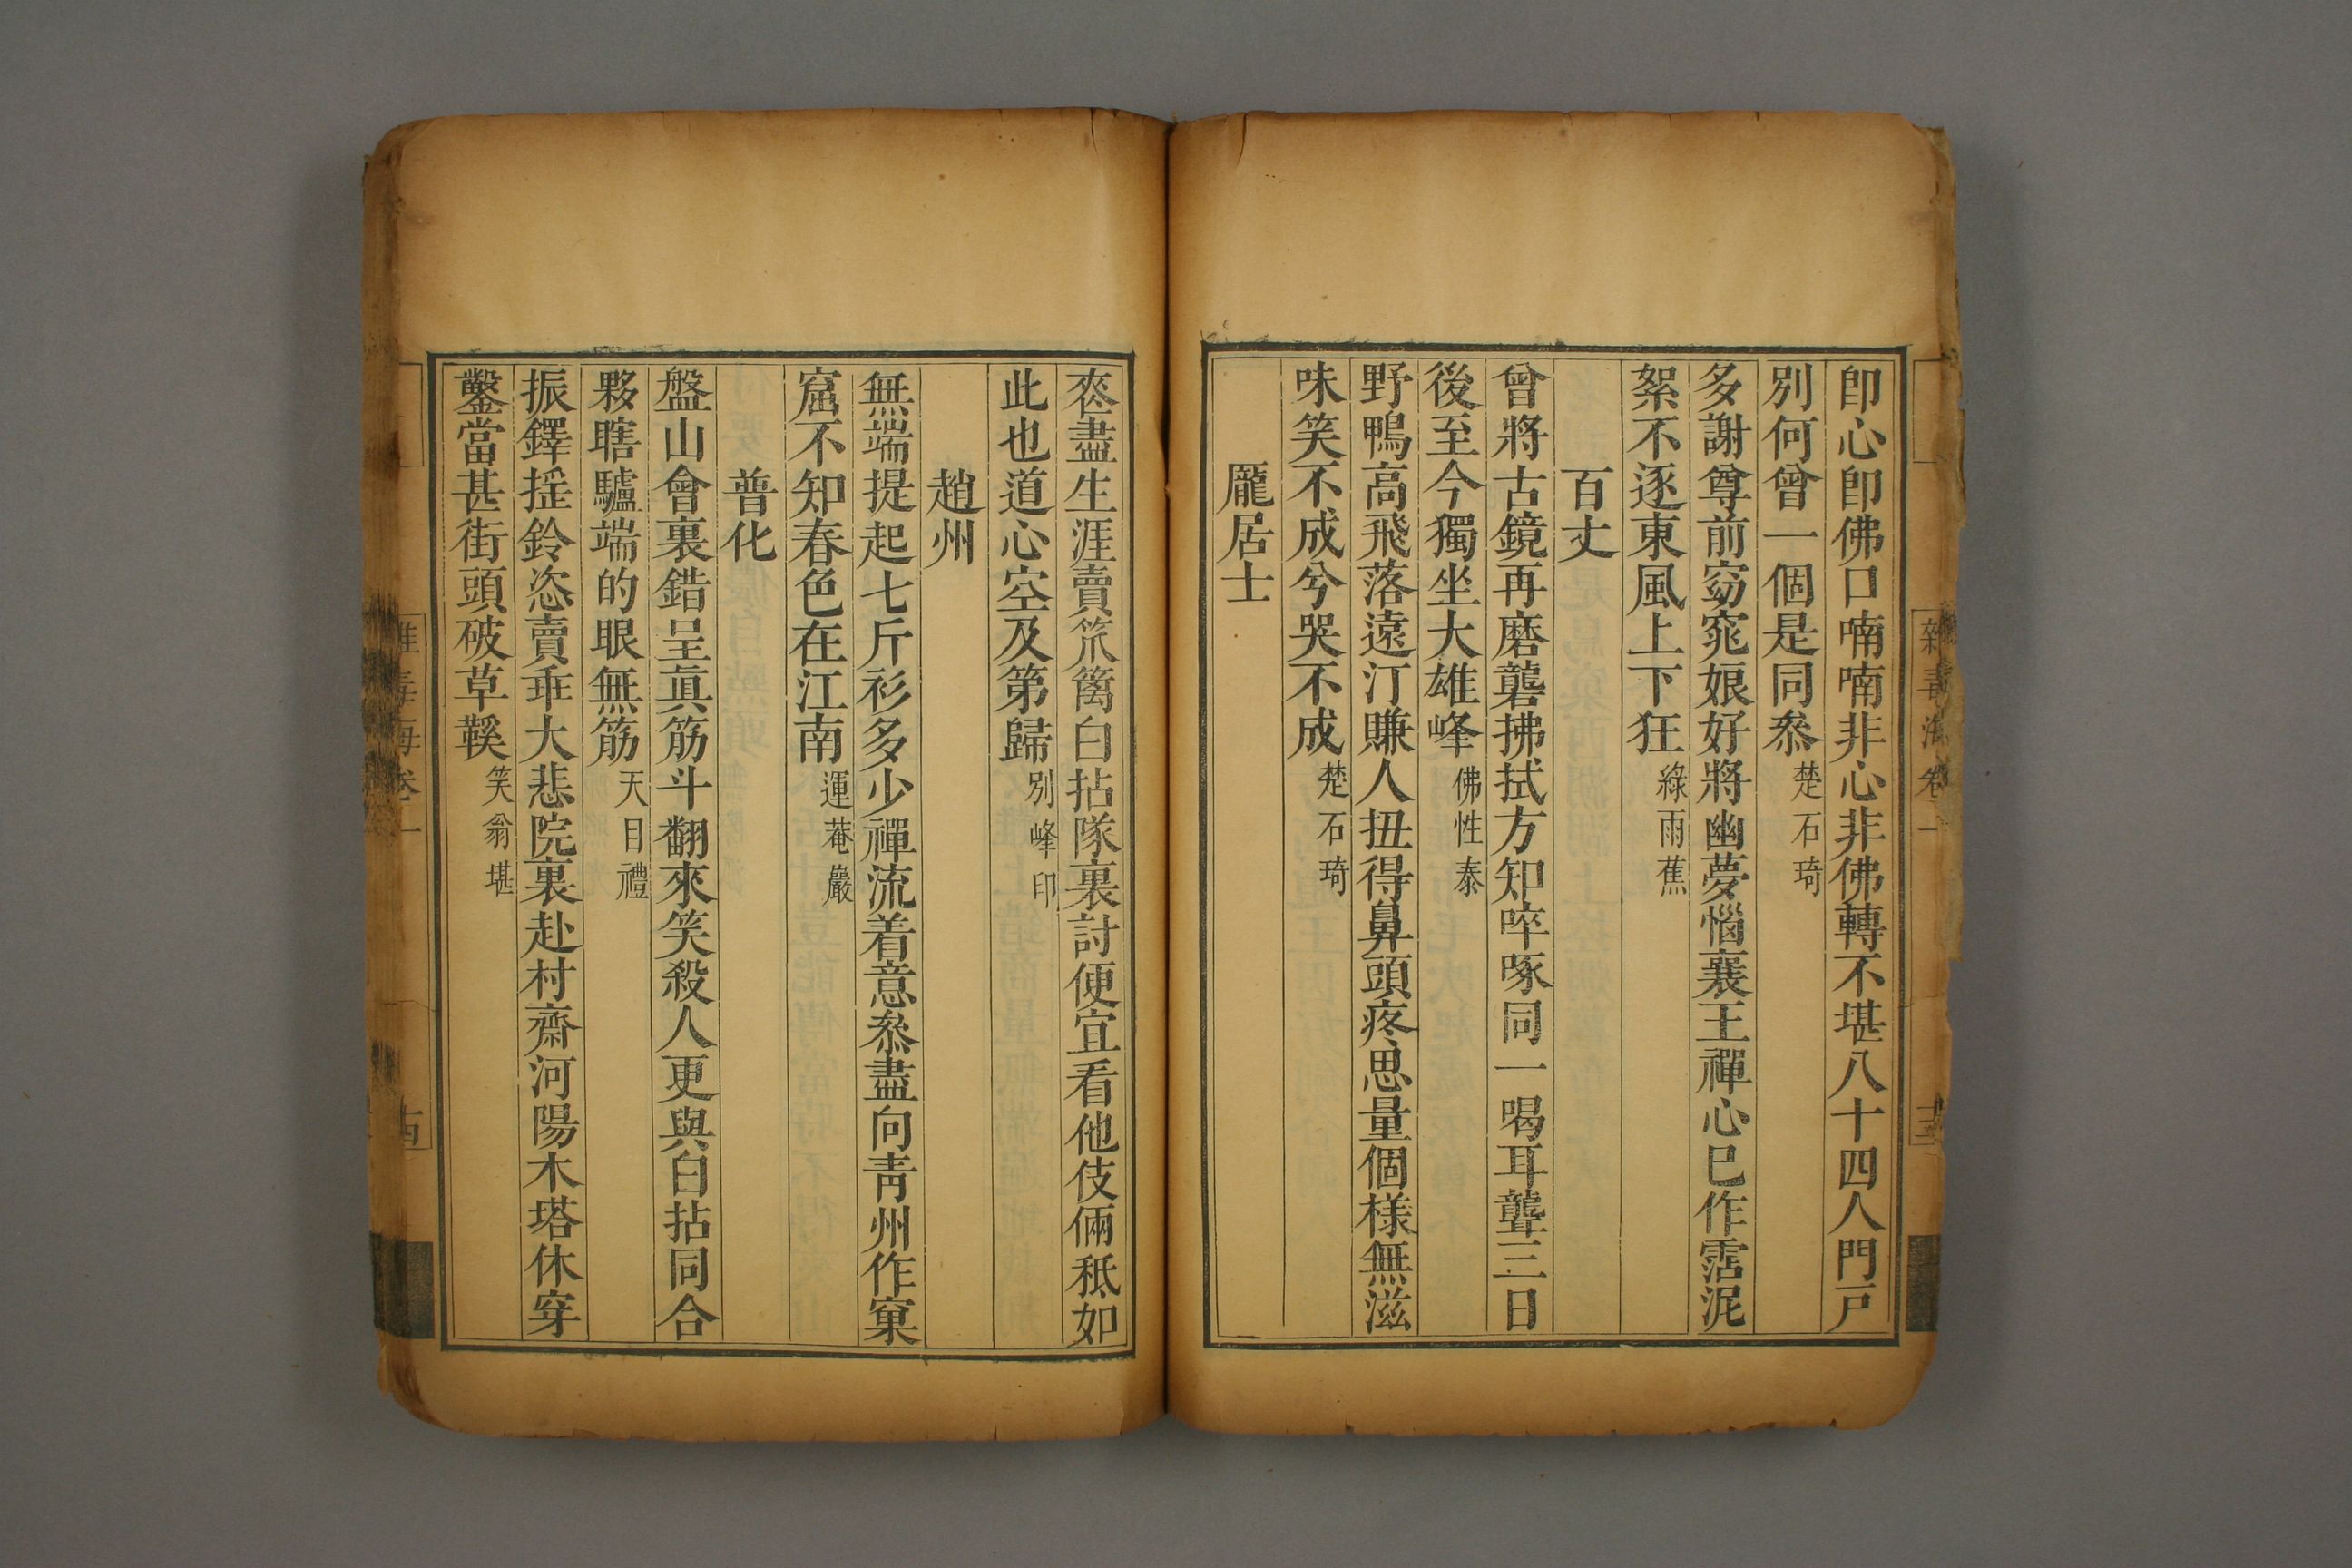 卽心卽佛口喃喃非心非佛轉不堪八十四人門戸
別何曾一個是同叅楚石琦
多謝尊前窈窕娘好將幽夢惱襄王禪心巳作霑泥
絮不逐東風上下狂綠雨蕉
百丈
曾將古鏡再磨礱拂拭方知啐啄同一喝耳聾三日
後至今獨坐大雄峰佛性泰
野鴨高飛落遠汀賺人扭得鼻頭疼思量個樣無滋
味笑不成兮哭不成楚石琦
龐居士
來盡生涯賣笊籬白拈隊裏討便宜看他伎倆秪如
此也道心空及第歸別峰印
趙州
無端提起七斤衫多少禪流着意叅盡向青州作窠
窟不知春色在江南運菴巖
普化
盤山會裏錯呈眞筋斗翻來笑殺人更與白拈同合
夥瞎驢端的眼無筋天目禮
振鐸搖鈴恣賣乖大悲院裏赴村齋河陽木塔休穿
鑿當甚街頭破草鞵笑翁堪